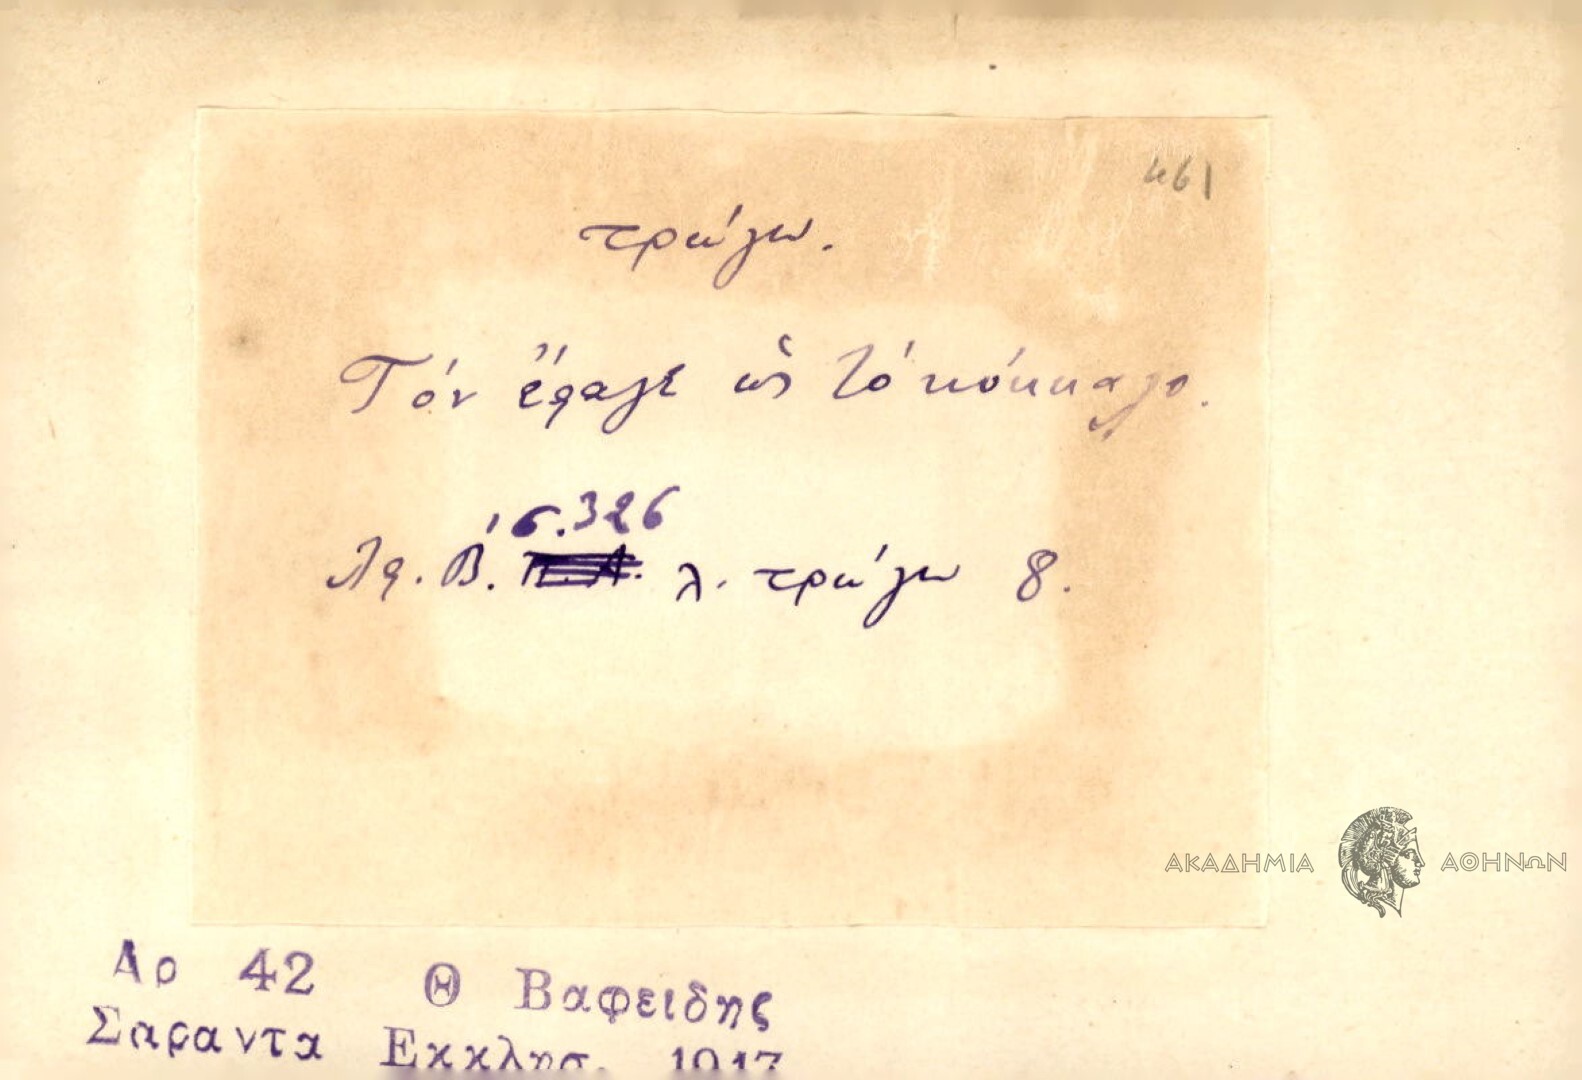 461
τρώγω.
Τόν ἔφαγε ὡς τό κόκκαλο.
σ. 326
Λφ. Β΄. λ. τρώγω 8.
ΑΚΑΔΗΜΙΑ ΑΘΗΝΩΝ
Αρ 42 Θ Βαφειδης
Σαραντα Εκκλησ. 1917